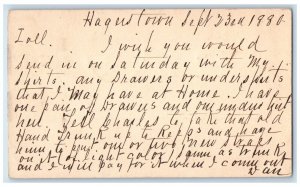 Hagerstown Sept 23rd 1880.
I wish you would
send me on Saturday with My
shirts. any Drawers or undershirts
that I May have at Home. I have
one pair of Drawers and one undershirt
here. Tell Charles to take that old
Hand Trunk up to and have
him to put one or two new straps
on it of light color same as trunk
and I will pay for it when I come out
Dan